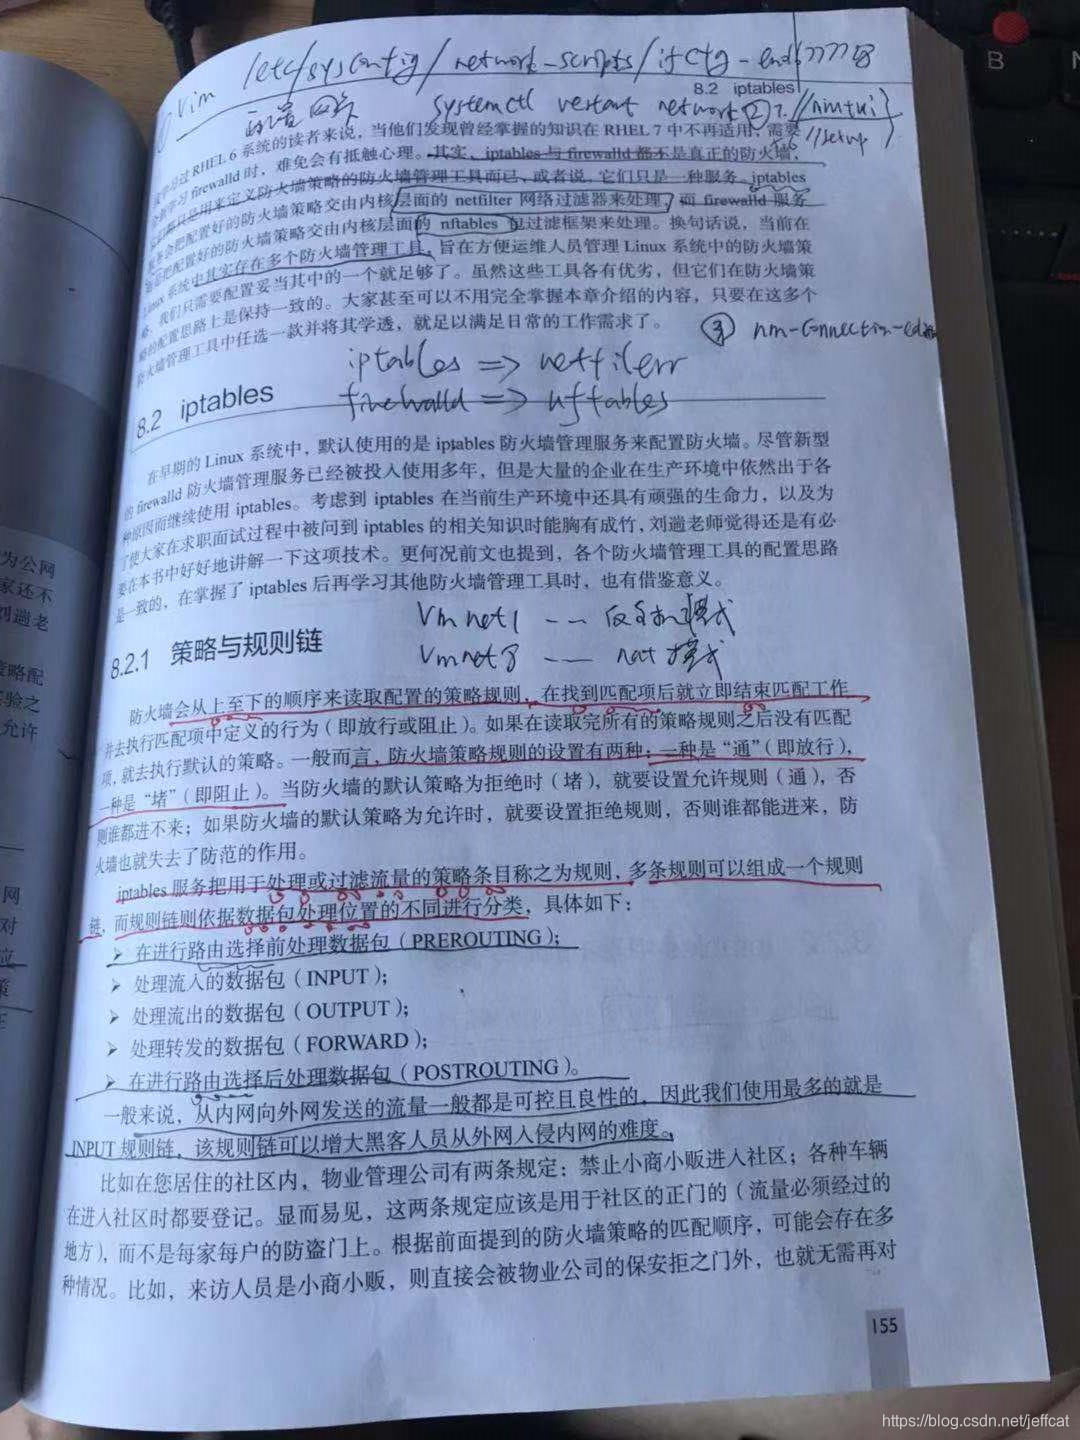 vim /etc/sysconfig/network-scripts/ifcfg-en
8.2 iptables
配置网卡 systemctl restart network ② nmtui
//setup
学习过 RHEL 6 系统的读者来说，当他们发现曾经掌握的知识在 RHEL 7 中不再适用，需要
学习 firewalld 时，难免会有抵触心理。其实，iptables 与 firewalld 都不是真正的防火墙，
只是用来定义防火墙策略的防火墙管理工具而已，或者说，它们只是一种服务。iptables
服务会把配置好的防火墙策略交由内核层面的 netfilter 网络过滤器来处理，而 firewalld 服务
则是把配置好的防火墙策略交由内核层面的 nftables 包过滤框架来处理。换句话说，当前在
Linux 系统中其实存在多个防火墙管理工具，旨在方便运维人员管理 Linux 系统中的防火墙策
略，我们只需要配置妥当其中的一个就足够了。虽然这些工具各有优劣，但它们在防火墙策
略的配置思路上是保持一致的。大家甚至可以不用完全掌握本章介绍的内容，只要在这多个
防火墙管理工具中任选一款并将其学透，就足以满足日常的工作需求了。
③ nm-connection-edi
iptables => netfilerr
firewalld => nftables
8.2 iptables
在早期的 Linux 系统中，默认使用的是 iptables 防火墙管理服务来配置防火墙。尽管新型
的 firewalld 防火墙管理服务已经被投入使用多年，但是大量的企业在生产环境中依然出于各
种原因而继续使用 iptables。考虑到 iptables 在当前生产环境中还具有顽强的生命力，以及为
了使大家在求职面试过程中被问到 iptables 的相关知识时能胸有成竹，刘遄老师觉得还是有必
要在本书中好好地讲解一下这项技术。更何况前文也提到，各个防火墙管理工具的配置思路
是一致的，在掌握了 iptables 后再学习其他防火墙管理工具时，也有借鉴意义。
Vmnet1 —— 仅主机模式
Vmnet8 —— nat 模式
8.2.1 策略与规则链
防火墙会从上至下的顺序来读取配置的策略规则，在找到匹配项后就立即结束匹配工作
并去执行匹配项中定义的行为（即放行或阻止）。如果在读取完所有的策略规则之后没有匹配
项，就去执行默认的策略。一般而言，防火墙策略规则的设置有两种：一种是“通”（即放行），
一种是“堵”（即阻止）。当防火墙的默认策略为拒绝时（堵），就要设置允许规则（通），否
则谁都进不来；如果防火墙的默认策略为允许时，就要设置拒绝规则，否则谁都能进来，防
火墙也就失去了防范的作用。
iptables 服务把用于处理或过滤流量的策略条目称之为规则，多条规则可以组成一个规则
链，而规则链则依据数据包处理位置的不同进行分类，具体如下：
➢ 在进行路由选择前处理数据包（PREROUTING）；
➢ 处理流入的数据包（INPUT）；
➢ 处理流出的数据包（OUTPUT）；
➢ 处理转发的数据包（FORWARD）；
➢ 在进行路由选择后处理数据包（POSTROUTING）。
一般来说，从内网向外网发送的流量一般都是可控且良性的，因此我们使用最多的就是
INPUT 规则链，该规则链可以增大黑客人员从外网入侵内网的难度。
比如在您居住的社区内，物业管理公司有两条规定：禁止小商小贩进入社区；各种车辆
在进入社区时都要登记。显而易见，这两条规定应该是用于社区的正门的（流量必须经过的
地方），而不是每家每户的防盗门上。根据前面提到的防火墙策略的匹配顺序，可能会存在多
种情况。比如，来访人员是小商小贩，则直接会被物业公司的保安拒之门外，也就无需再对
155
为公网
家还不
刘遄老
策略配
验之
允许
网
对
应
策
B
N
https://blog.csdn.net/jeffcat